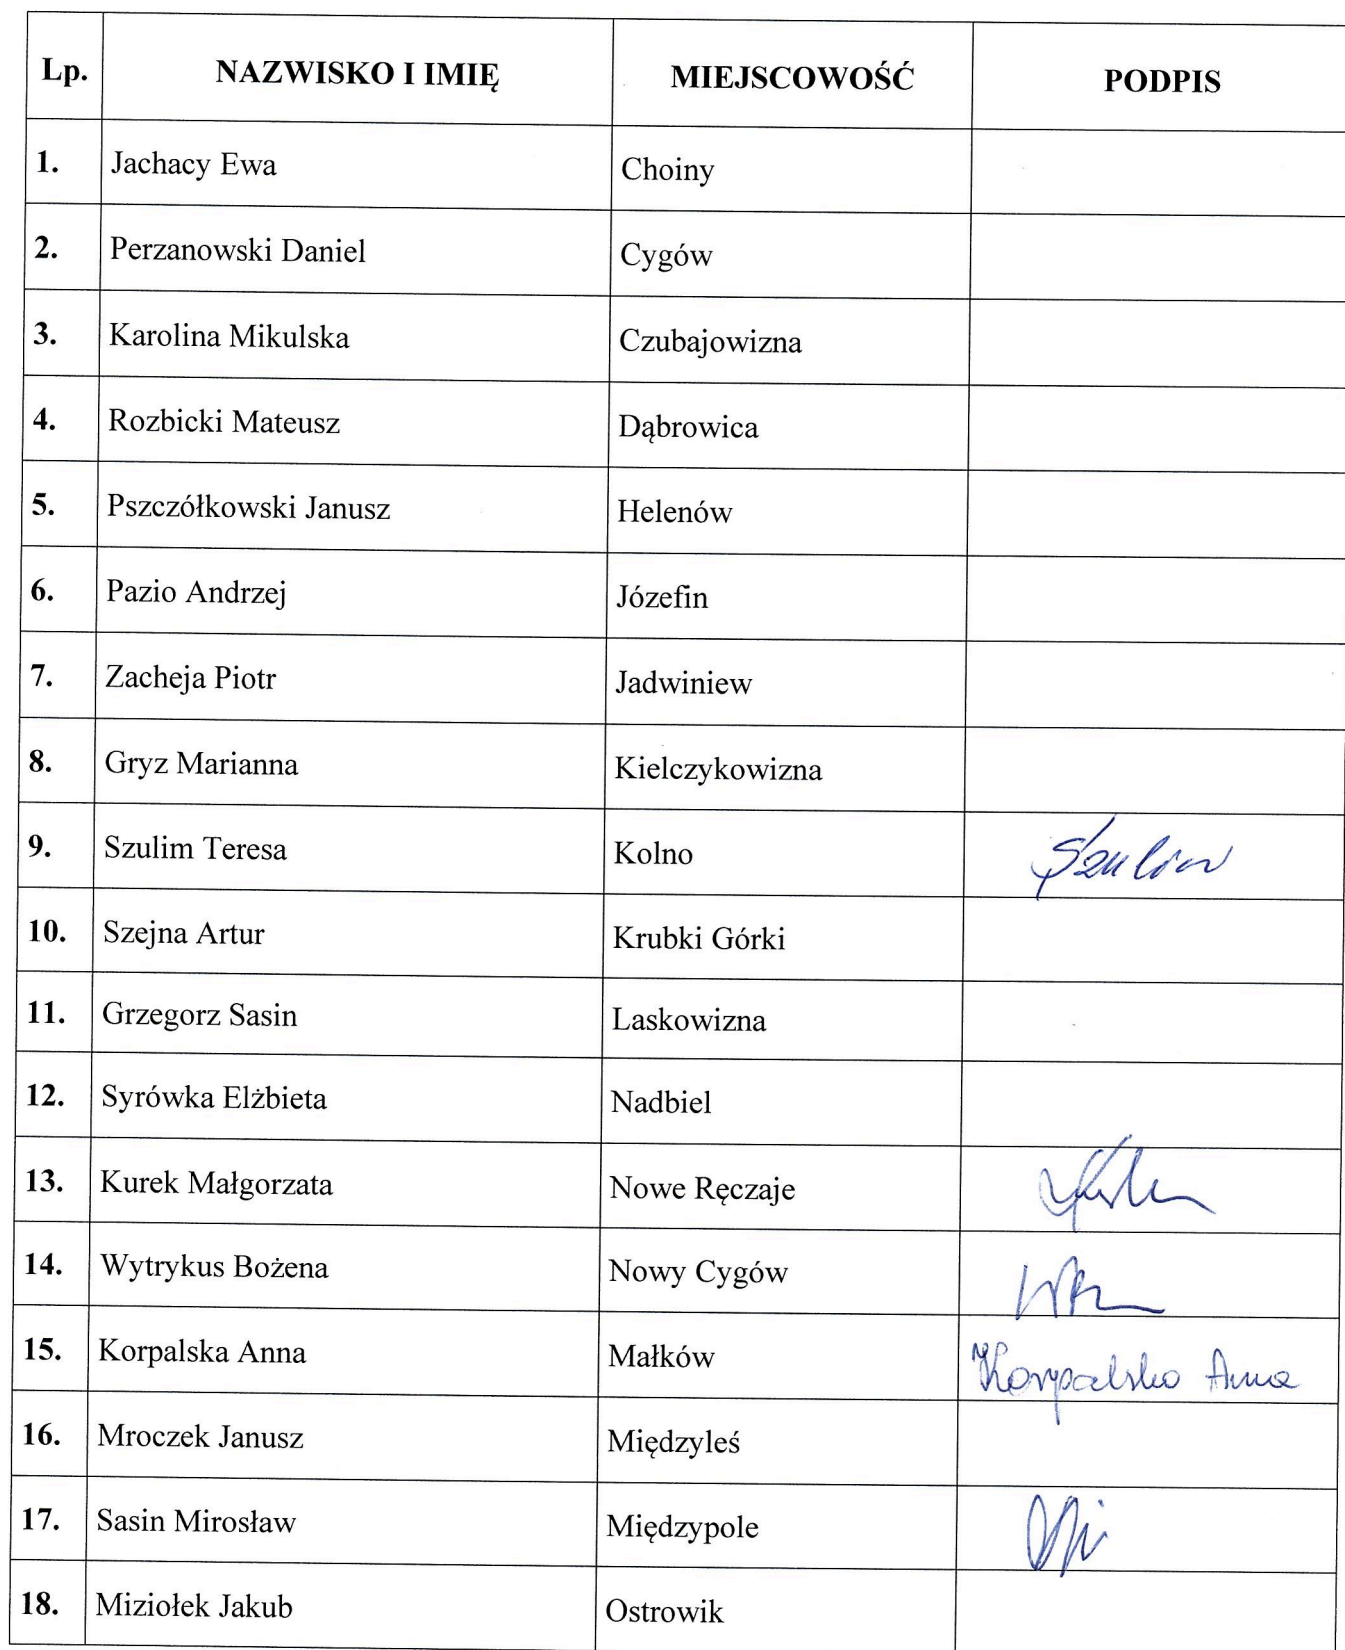 Lp. NAZWISKO I IMIĘ MIEJSCOWOŚĆ PODPIS
1. Jachacy Ewa Choiny
2. Perzanowski Daniel Cygów
3. Karolina Mikulska Czubajowizna
4. Rozbicki Mateusz Dąbrowica
5. Pszczółkowski Janusz Helenów
6. Pazio Andrzej Józefin
7. Zacheja Piotr Jadwiniew
8. Gryz Marianna Kielczykowizna
9. Szulim Teresa Kolno Szulim
10. Szejna Artur Krubki Górki
11. Grzegorz Sasin Laskowizna
12. Syrówka Elżbieta Nadbiel
13. Kurek Małgorzata Nowe Ręczaje
14. Wytrykus Bożena Nowy Cygów
15. Korpalska Anna Małków Korpalska Anna
16. Mroczek Janusz Międzyleś
17. Sasin Mirosław Międzypole
18. Miziołek Jakub Ostrowik